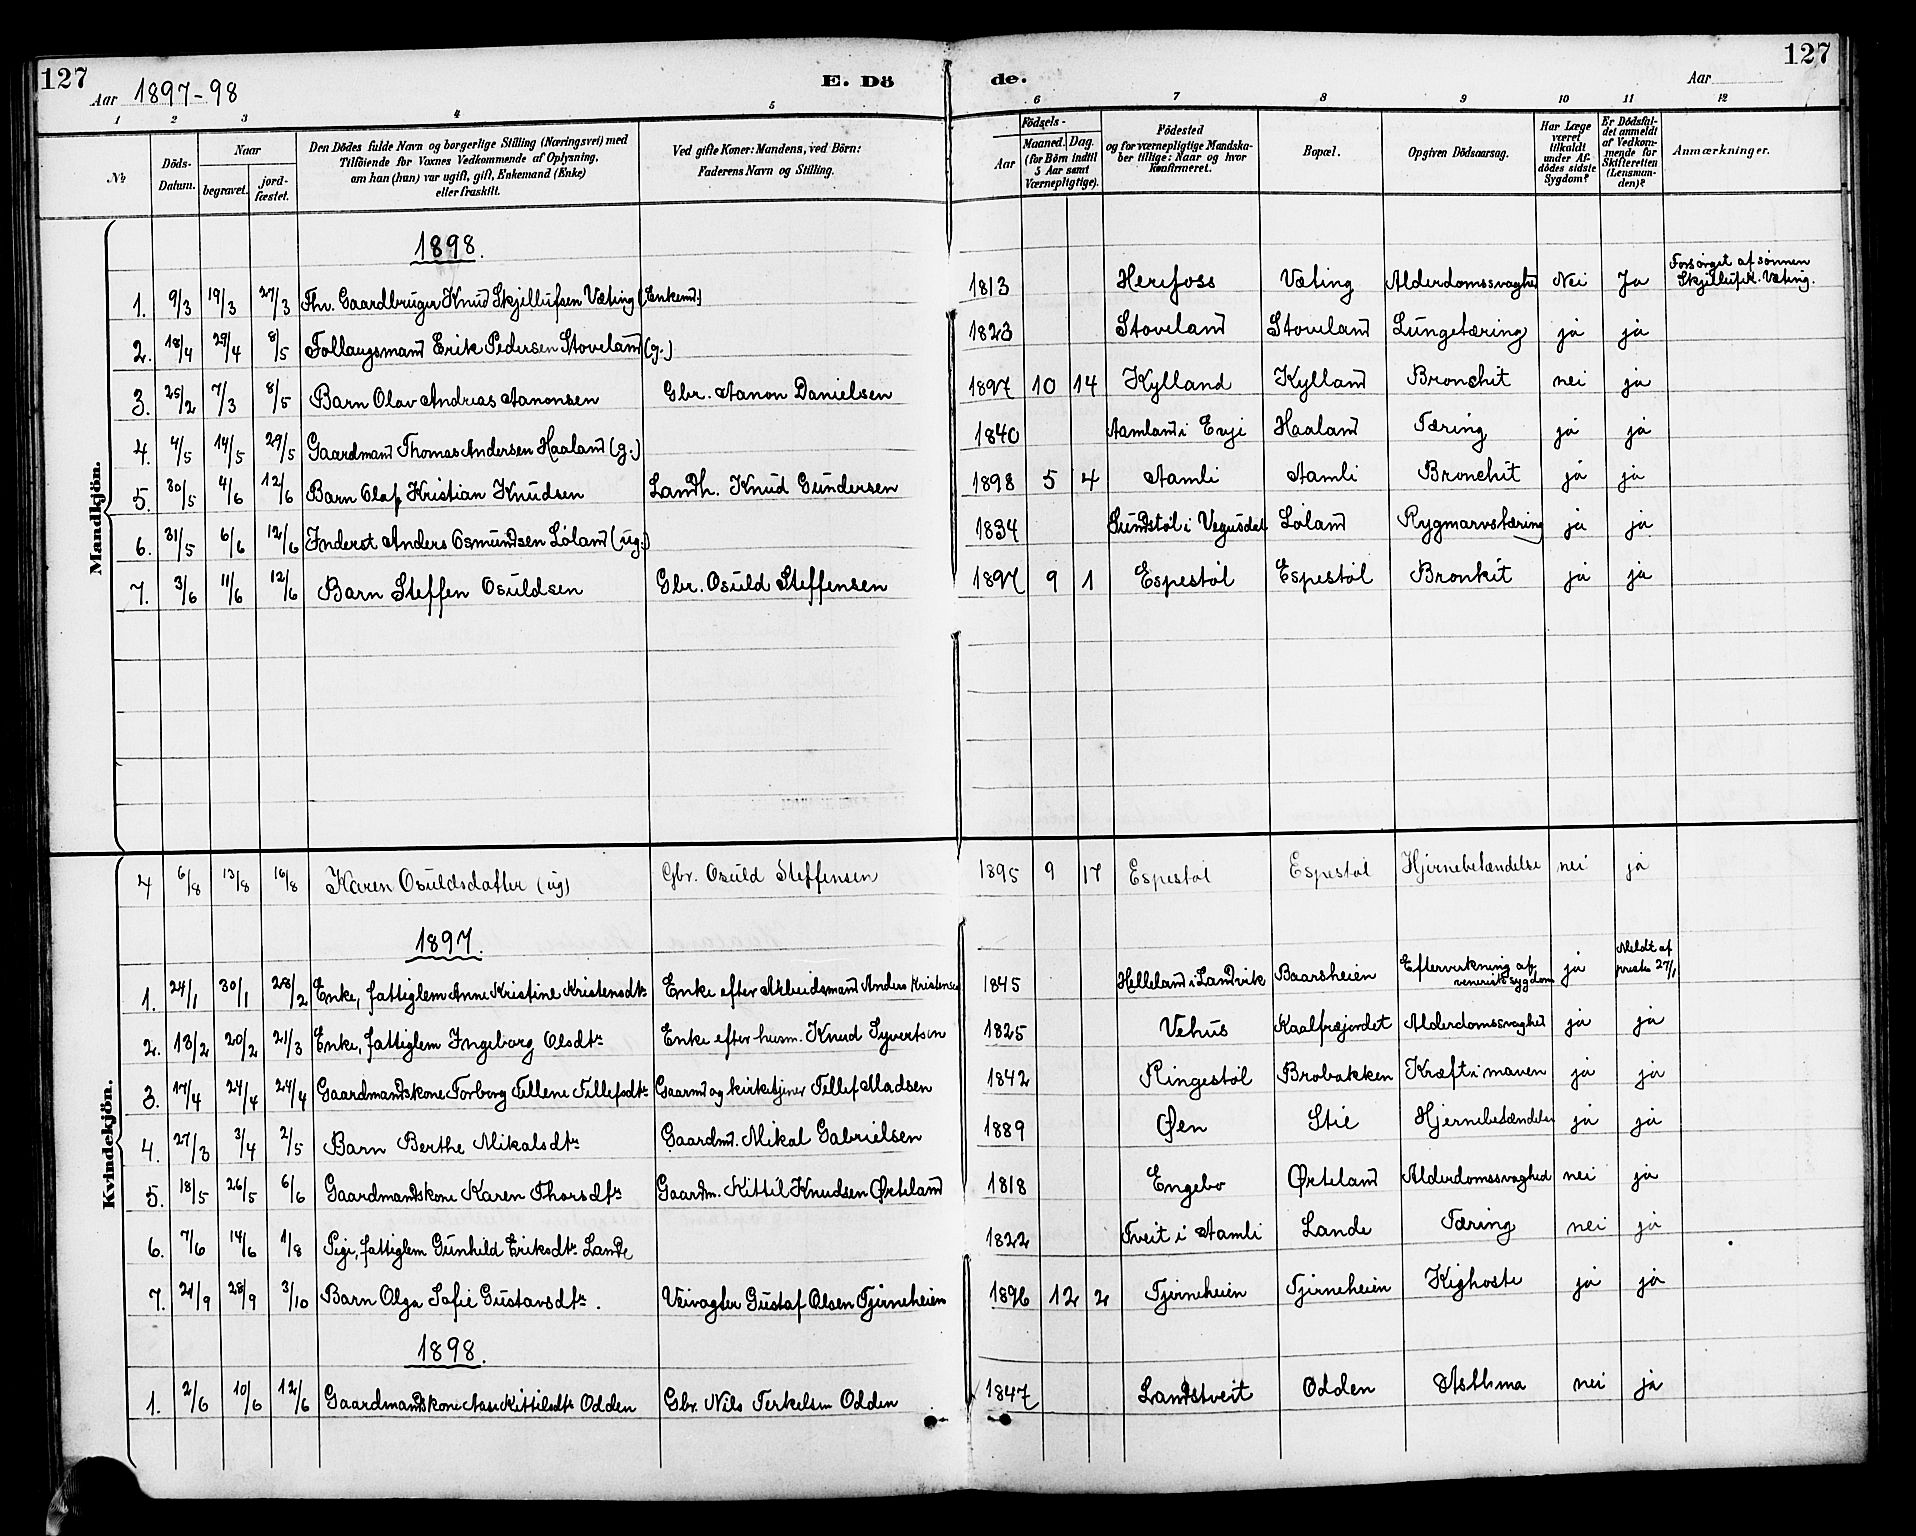 127 127
Aar 1897-98 E. Dö de. Aar
1 2 3 4 5 6 7 8 9 10 11 12
№
Döds-Datum.
Naar
begravet. jord-fæstet.
Den Dödes fulde Navn og borgerlige Stilling (Næringsvei) med
Tilföiende for Voxnes Vedkommende af Oplysning,
om han (hun) var ugift, gift, Enkemand (Enke)
eller fraskilt.
Ved gifte Koner: Mandens, ved Börn:
Faderens Navn og Stilling.
Födsels-
Aar Maaned. Dag.
(for Börn indtil
5 Aar samt
Værnepligtige).
Födested
og for værnepligtige Mandska-
ber tillige: Naar og hvor
Konfirmeret.
Bopæl.
Opgiven Dödsaarsag.
Har Læge
været
tilkaldt
under Af-
dödes sidste
Sygdom?
Er Dödsfal-
det anmeldt
af Vedkom-
mende for
Skifteretten
(Lensman-
den)?
Anmærkninger.
Mandkjön.
1898.
1. 9/3 19/3 27/3 Fhv. Gaardbruger Knud Skjellufsen Væting (Enkemd.) 1813 Herefoss Væting Alderdomssvaghed Nei Ja Forsørget af sønnen
Skjelluf K. Væting.
2. 18/4 29/4 8/5 Follaugsmand Erik Pedersen Stoveland (g.) 1823 Stoveland Stoveland Lungetæring ja ja
3. 25/2 7/3 8/5 Barn Olav Andreas Aanonsen Gbr. Aanon Danielsen 1897 10 14 Kylland Kylland Bronchit nei ja
4. 4/5 14/5 29/5 Gaardmand Thomas Andersen Haaland (g.) 1840 Aamland i Evje Haaland Tæring ja ja
5. 30/5 4/6 12/6 Barn Olaf Kristian Knudsen Landh. Knud Gundersen 1898 5 4 Aamli Aamli Bronchit ja ja
6. 31/5 6/6 12/6 Inderst Anders Osmundsen Løland (ug.) 1834 Sundstøl i Vegusdal Løland Rygmarvstæring ja ja
7. 3/6 11/6 12/6 Barn Steffen Osuldsen Gbr. Osuld Steffensen 1897 9 1 Espestøl Espestøl Bronkit ja ja
Kvindekjön.
4 6/8 13/8 16/8 Karen Osuldsdatter (ug) Gbr. Osuld Steffensen 1895 9 17 Espestøl Espestøl Hjernebetændelse nei ja
1897.
1. 24/1 30/1 28/2 Enke, fattiglem Anne Kristine Kristensdtr Enke efter Arbeidsmand Anders Kristensen 1845 Helleland i Landvik Baarsheien Eftervirkning af
venerisk sygdom ja Meldt af
prest 27/1
2. 13/2 20/2 21/3 Enke, fattiglem Ingeborg Olsdtr Enke efter husm. Knud Syvertsen 1825 Vehus Kaalfræjordet Alderdomssvaghed ja ja
3. 17/4 24/4 24/4 Gaardmandskone Torborg Tellene Tellefsdtr Gaarmd og kirketjener Tellef Madsen 1842 Ringestøl Brobakken Kræft i maven ja ja
4. 27/3 3/4 2/5 Barn Berthe Mikalsdtr Gaardmd. Mikal Gabrielsen 1889 Øen Stie Hjernebetændelse ja ja
5. 18/5 26/5 6/6 Gaardmandskone Karen Thorsdtr Gaardm. Kittil Knudsen Ørteland 1818 Engebo Ørteland Alderdomssvaghed nei ja
6. 7/6 14/6 1/8 Pige, fattiglem Gunhild Eriksdtr Lande 1822 Tveit i Aamli Lande Tæring nei ja
7. 21/9 28/9 3/10 Barn Olga Sofie Gustavsdtr. Veivogter Gustaf Olsen Tjirneheien 1896 12 2 Tjirneheien Tjirneheien Kighoste ja ja
1898.
1. 2/6 10/6 12/6 Gaardmandskone Aase Kittilsdtr Odden Gbr. Nils Terkelsen Odden 1847 Landstveit Odden Asthma nei ja